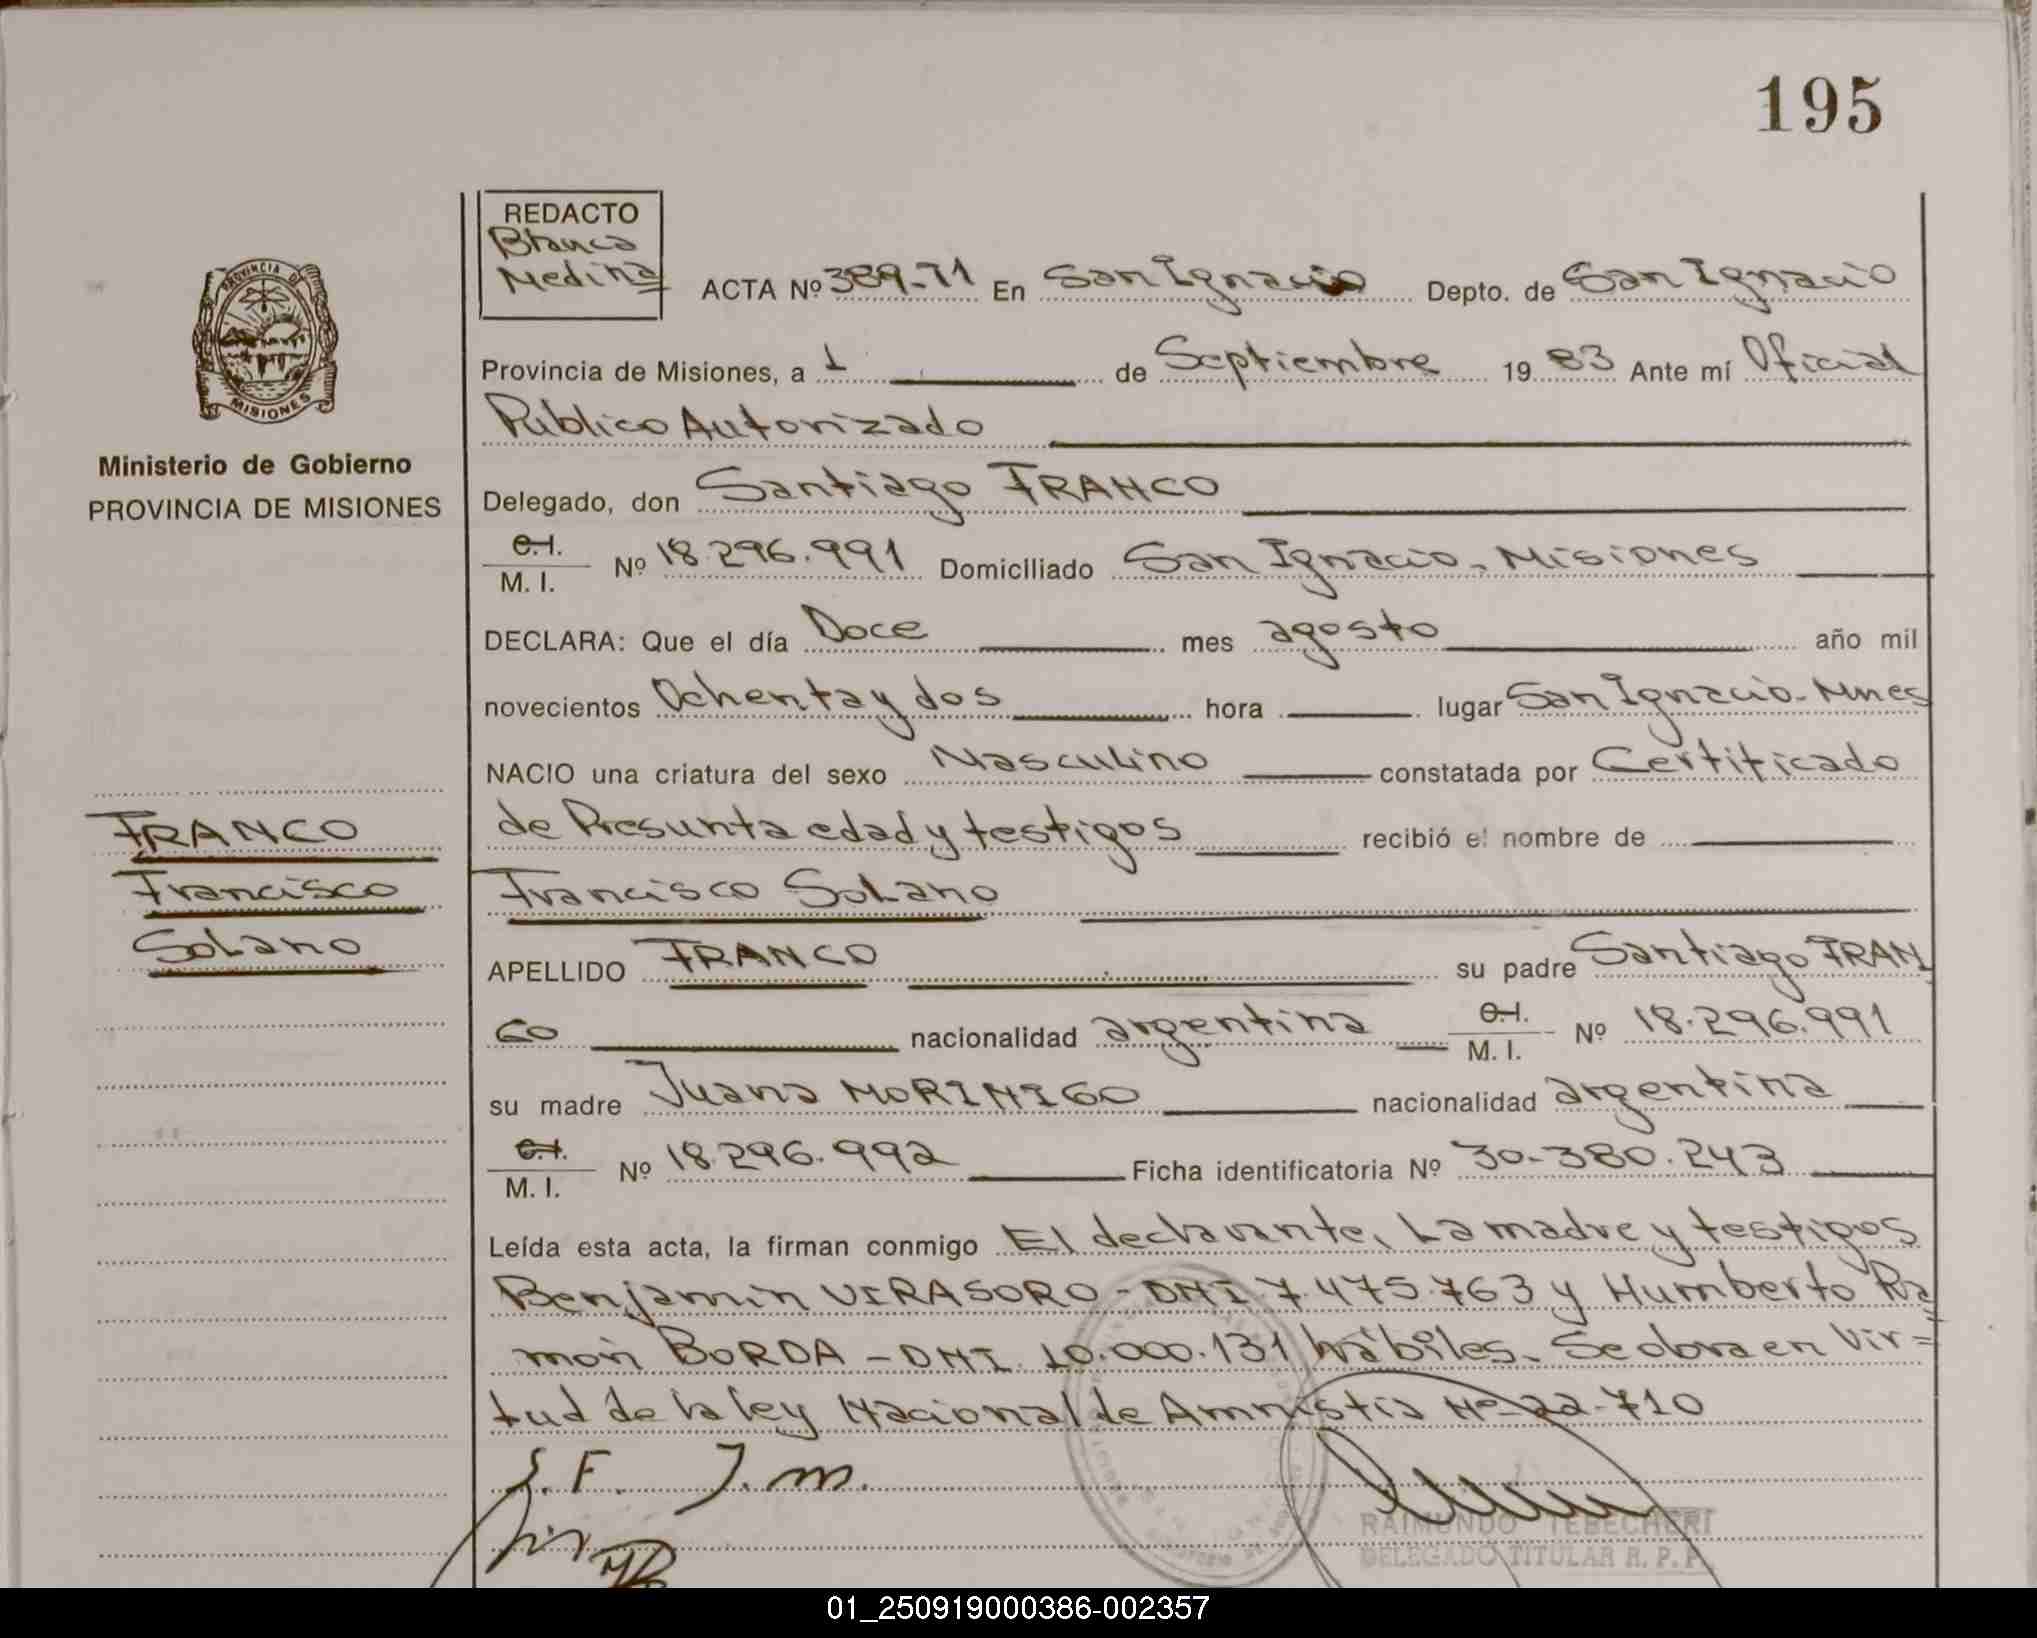 195
REDACTO
Blanca
Medina
ACTA Nº 389-T1 En San Ignacio Depto. de San Ignacio
PROVINCIA DE
MISIONES
Provincia de Misiones, a 1 de Septiembre 1983 Ante mí Oficial
Público Autorizado
Ministerio de Gobierno
PROVINCIA DE MISIONES
Delegado, don Santiago FRANCO
C.I.
M. I. Nº 18.296.991 Domiciliado San Ignacio - Misiones
DECLARA: Que el día Doce mes agosto año mil
novecientos Ochenta y dos hora lugar San Ignacio - Mnes
NACIO una criatura del sexo Masculino constatada por Certificado
de Presunta edad y testigos recibió el nombre de
FRANCO
Francisco
Solano
Francisco Solano
APELLIDO FRANCO su padre Santiago FRAN
CO nacionalidad argentina C.I. M. I. Nº 18.296.991
su madre Juana MORINIGO nacionalidad argentina
C.I.
M. I. Nº 18.296.992 Ficha identificatoria Nº 30-380.243
Leída esta acta, la firman conmigo El declarante, La madre y testigos
Benjamin VERASORO - DNI 7.475.763 y Humberto Ra
món BORDA - DNI 10.000.131 hábiles. Se obra en Vir=
tud de la ley Nacional de Amnistia Nº 22-710
S. F. J. m.
RAIMUNDO TEBECHERI
DELEGADO TITULAR R. P. P.
01_250919000386-002357